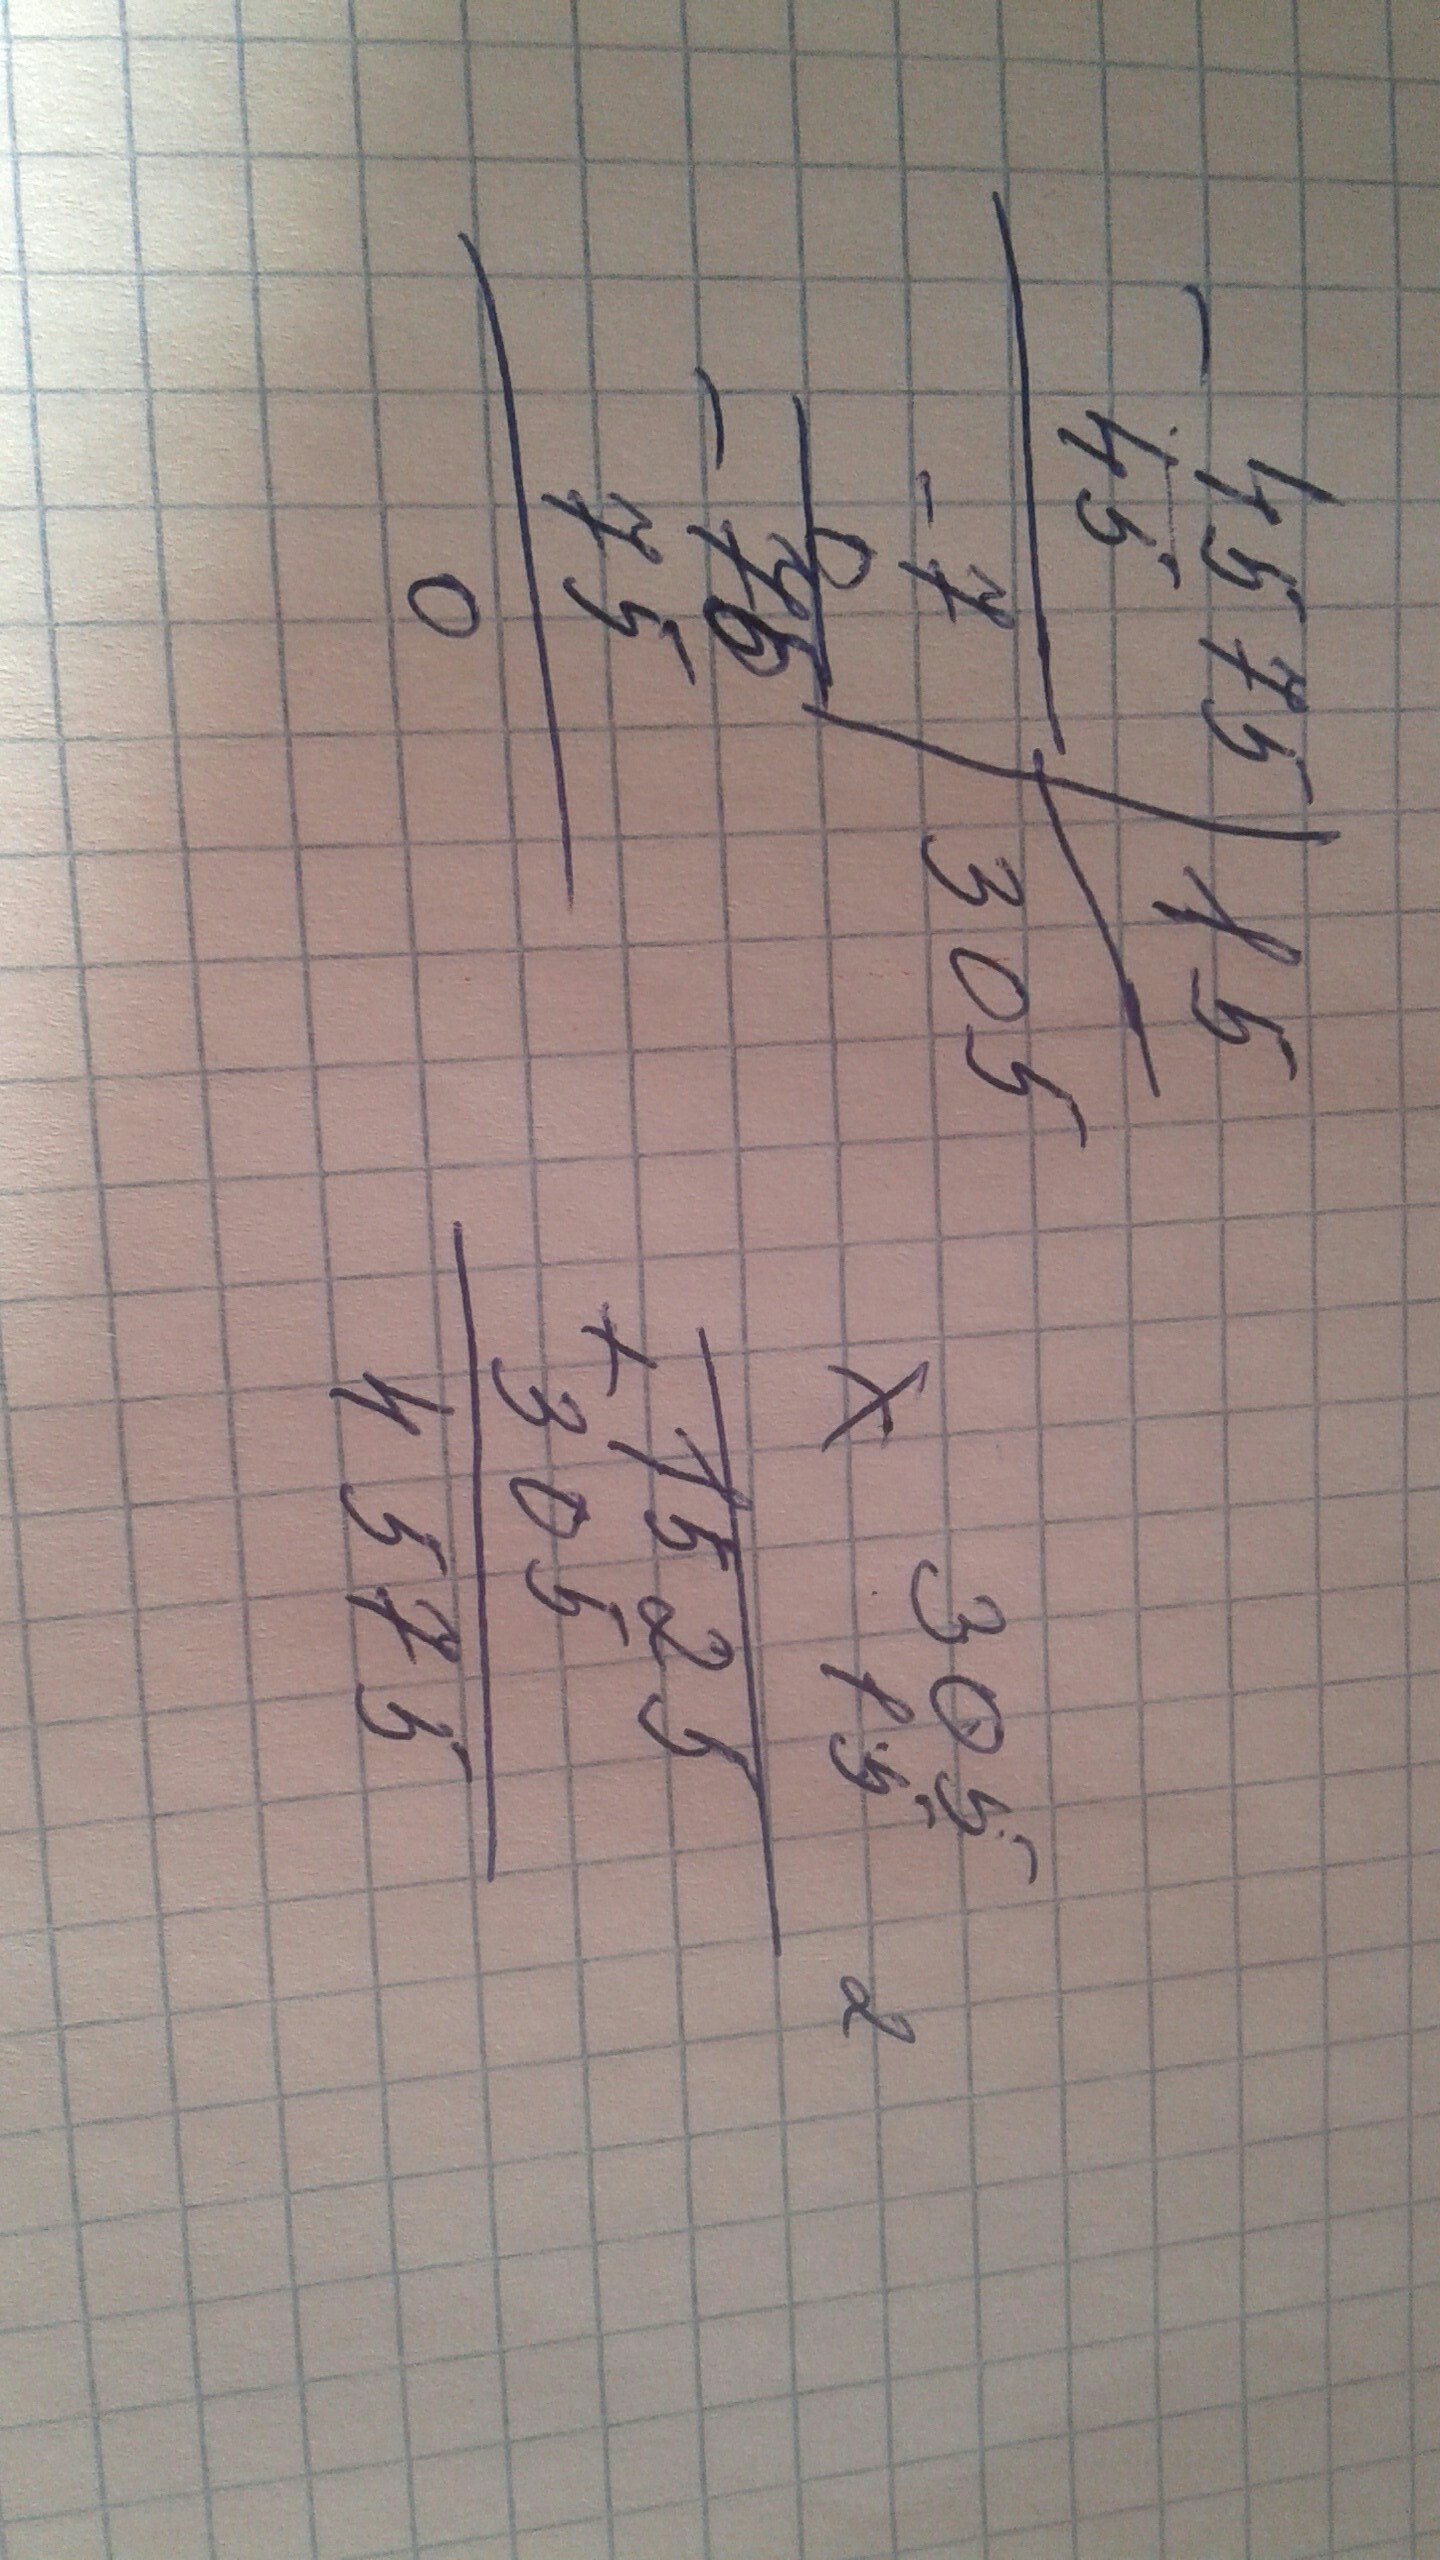 - 4575 | 15
45 305
- 7
0
- 75
75
0
× 305
15 2
1525
+ 305
4575